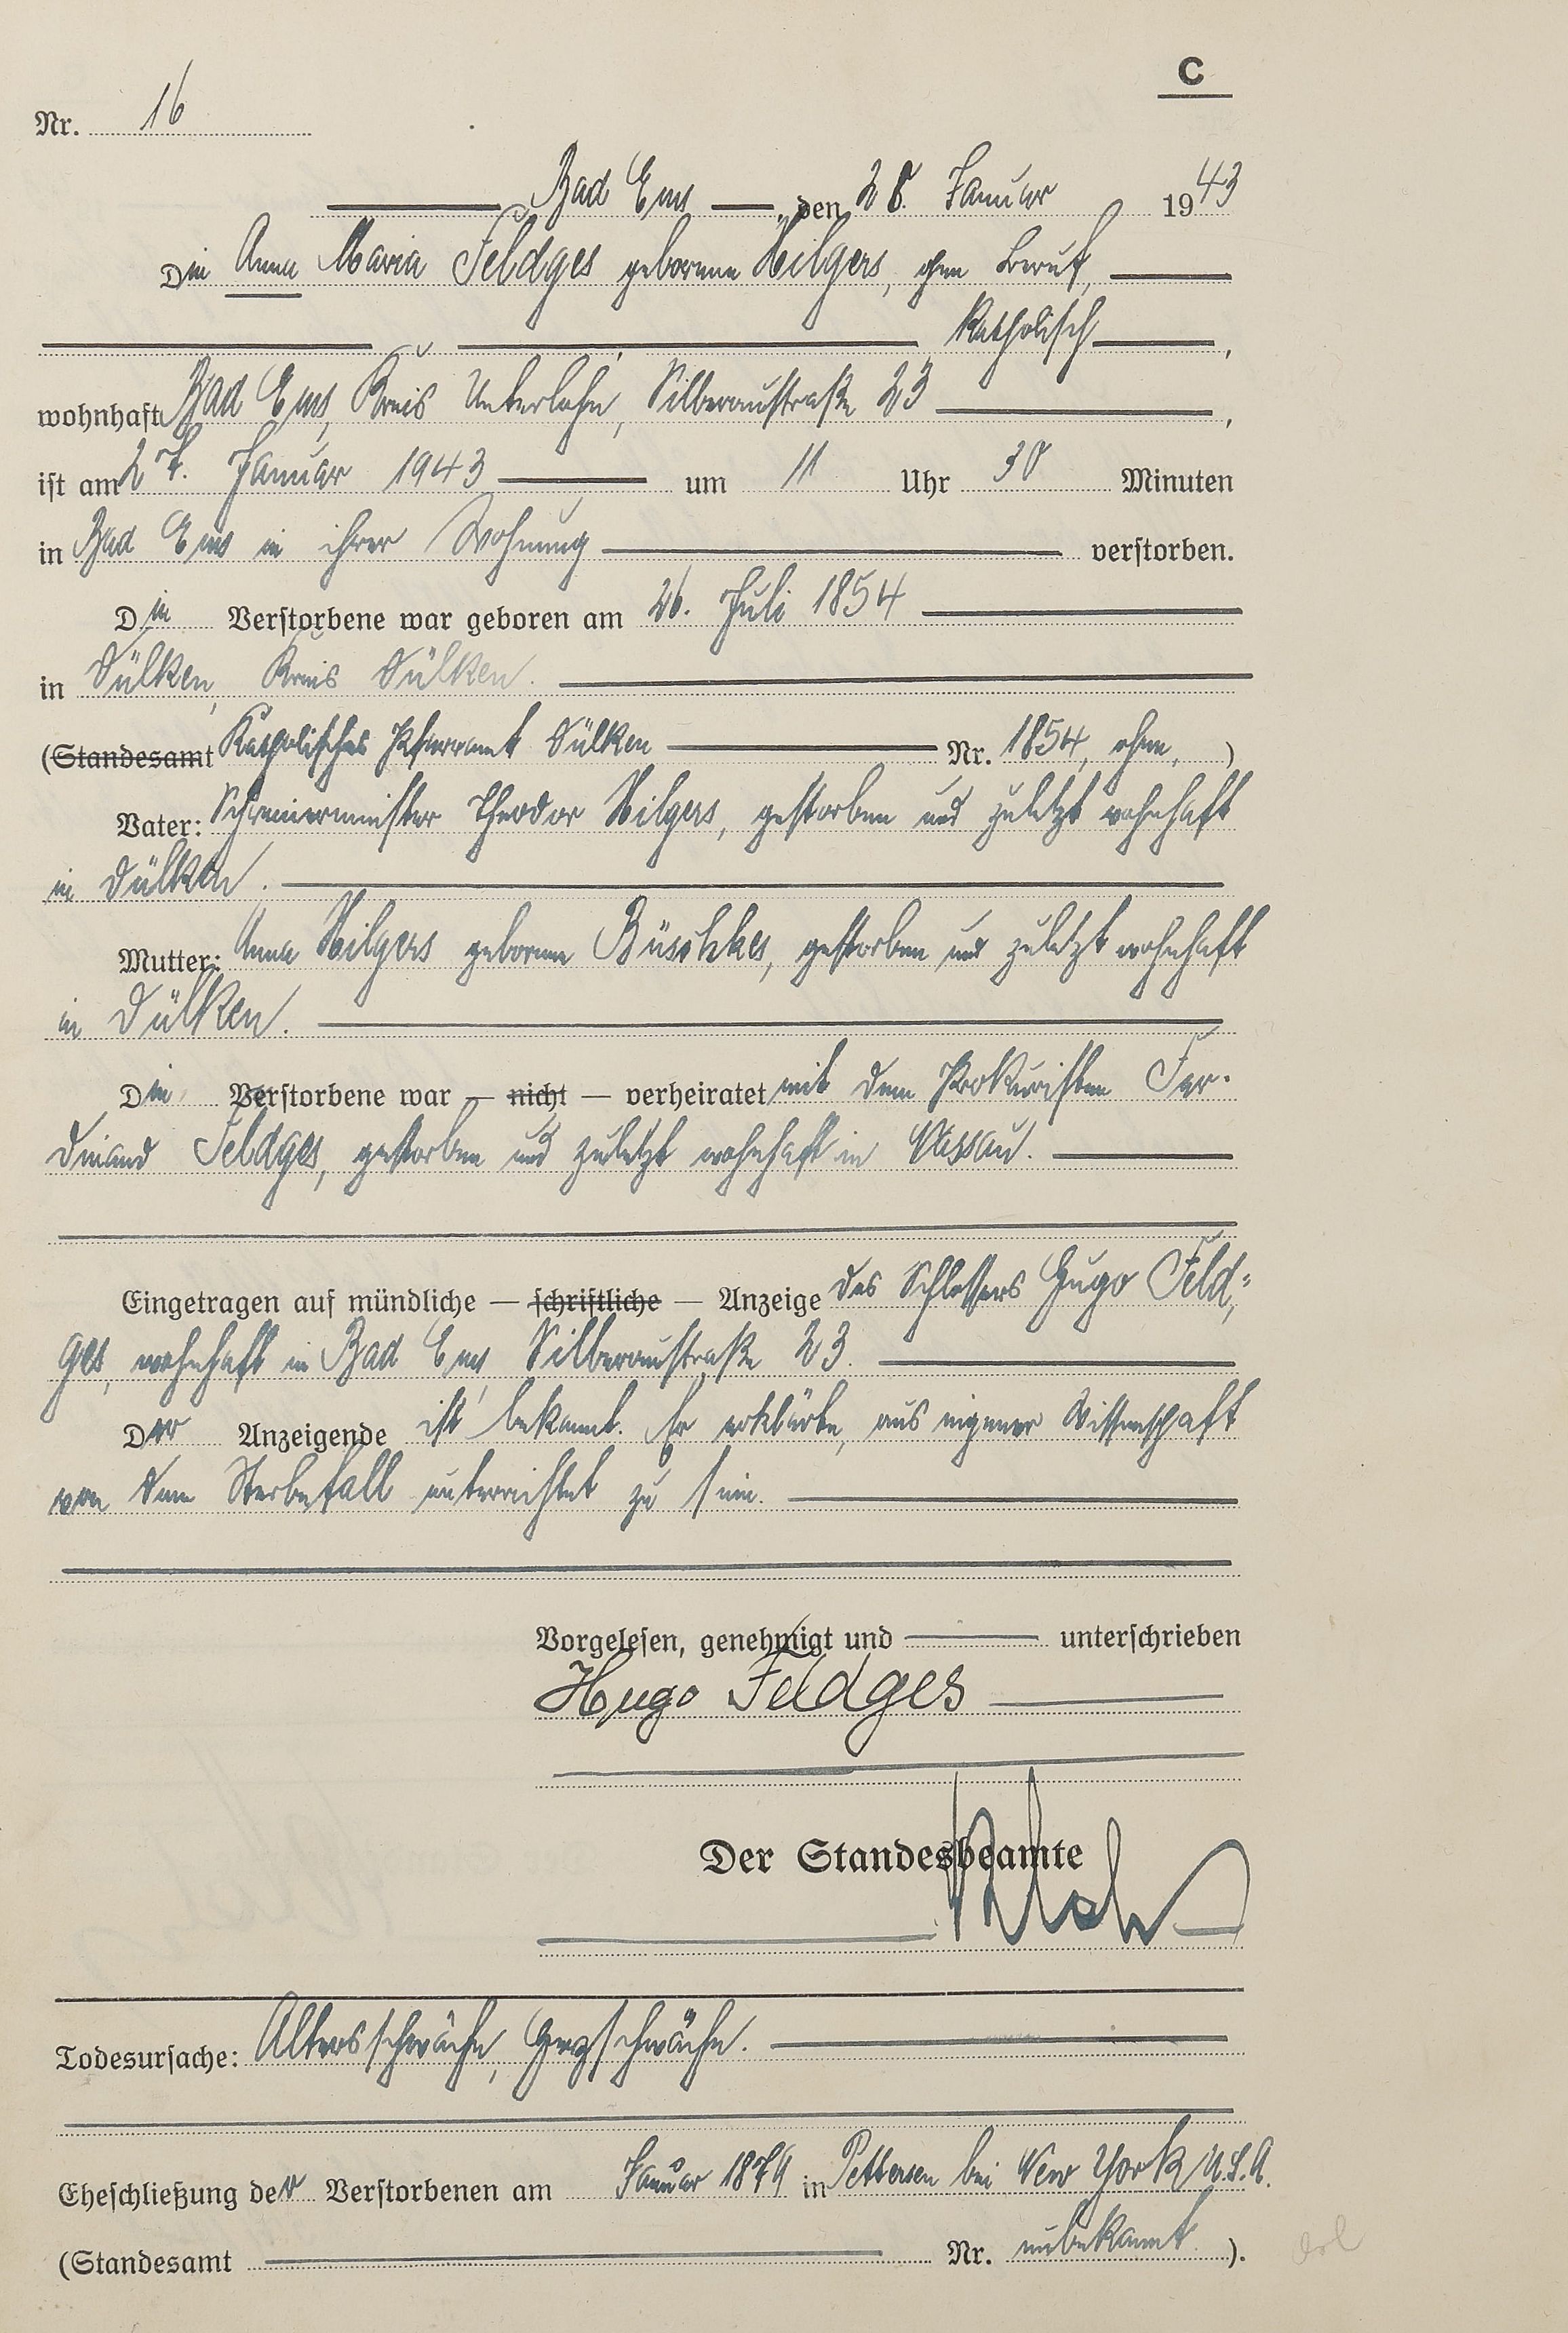 C
Nr. 16
Bad Ems, den 28. Januar 1943
Die Anna Maria Feldges geborene Hilgers, ohne Beruf,
katholisch,
wohnhaft Bad Ems, Kreis Unterlahn, Silberaustraße 23,
ist am 27. Januar 1943 um 11 Uhr 30 Minuten
in Bad Ems in ihrer Wohnung verstorben.
Die Verstorbene war geboren am 26. Juli 1854
in Dülken, Kreis Dülken.
(Standesamt Katholisches Pfarramt Dülken Nr. 1854, ohne,)
Vater: Schreinermeister Theodor Hilgers, gestorben und zuletzt wohnhaft
in Dülken.
Mutter: Anna Hilgers geborene Büschkes, gestorben und zuletzt wohnhaft
in Dülken.
Die Verstorbene war — nicht — verheiratet mit dem Prokuristen Fer-
dinand Feldges, gestorben und zuletzt wohnhaft in Nassau.
Eingetragen auf mündliche — schriftliche — Anzeige des Schlossers Hugo Feld=
ges, wohnhaft in Bad Ems, Silberaustraße 23.
Der Anzeigende ist bekannt. Er erklärte, aus eigener Wissenschaft
von dem Sterbefall unterrichtet zu sein.
Vorgelesen, genehmigt und unterschrieben
Hugo Feldges
Der Standesbeamte
Todesursache: Altersschwäche, Herzschwäche.
Eheschließung der Verstorbenen am Januar 1879 in Pettersen bei New York U.S.A.
(Standesamt Nr. unbekannt.).